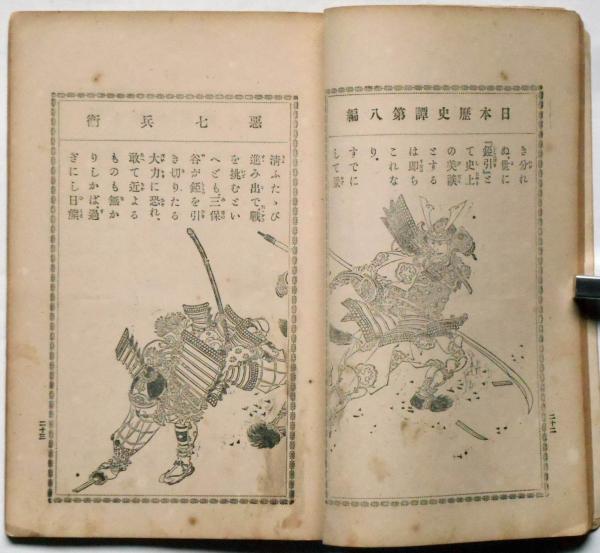 日本歴史譚第八編
き分れ
ぬ世に
『錣引』と
て史上
の美談
とする
は即ち
これな
り。
すでに
して景
二十二
惡七兵衞
清ふたゝび
進み出で、戰
を挑むとい
へども、三保
谷が錣を引
き切りたる
大力に恐れ、
敢て近よる
ものも無か
りしかば、過
ぎにし日、熊
二十三